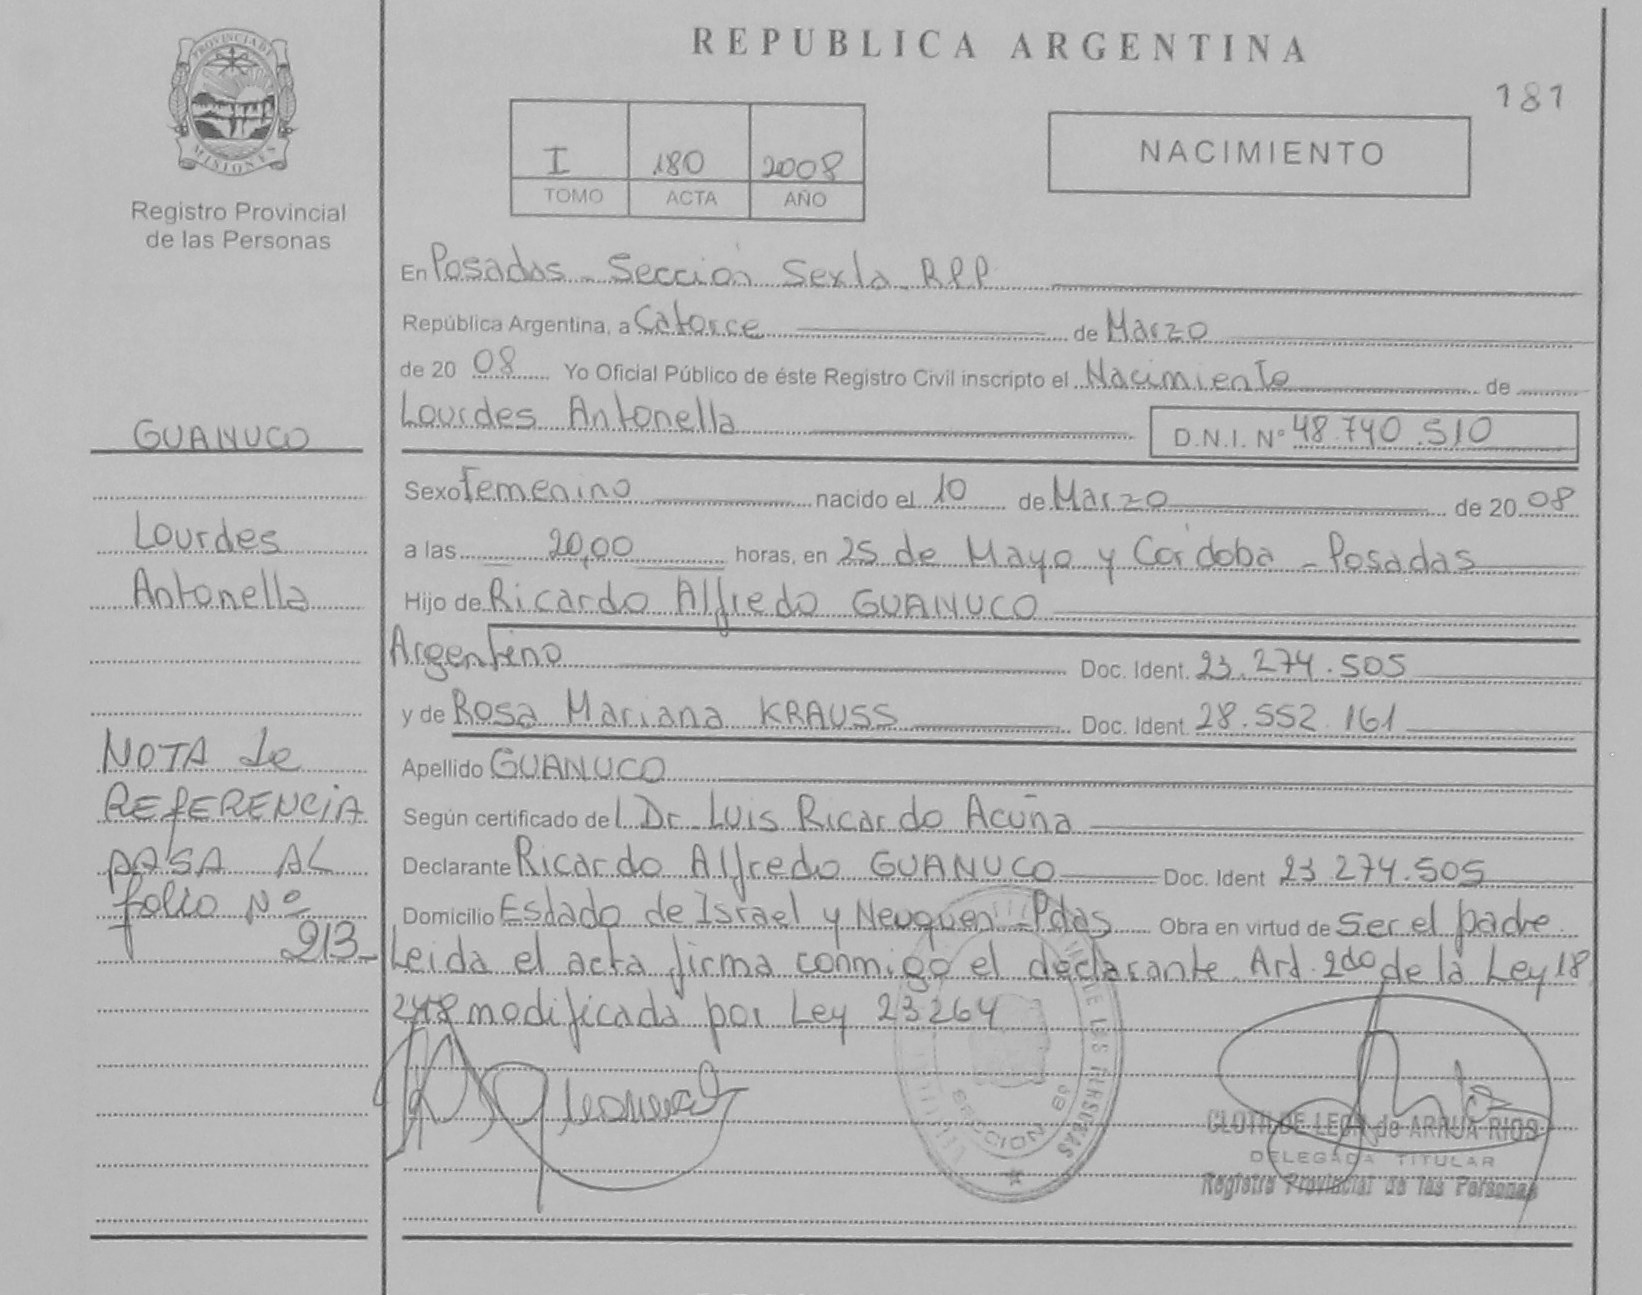 REPUBLICA ARGENTINA
181
PROVINCIA DE
MISIONES
Registro Provincial
de las Personas
I 180 2008
TOMO ACTA AÑO
NACIMIENTO
En Posadas - Sección Sexta RPP
República Argentina, a Catorce de Marzo
de 20 08 Yo Oficial Público de éste Registro Civil inscripto el Nacimiento de
Lourdes Antonella D.N.I. Nº 48.740.510
Sexo Femenino nacido el 10 de Marzo de 20 08
a las 20,00 horas, en 25 de Mayo y Córdoba - Posadas
Hijo de Ricardo Alfredo GUANUCO
Argentino Doc. Ident. 23.274.505
y de Rosa Mariana KRAUSS Doc. Ident. 28.552.161
Apellido GUANUCO
Según certificado del Dr. Luis Ricardo Acuña
Declarante Ricardo Alfredo GUANUCO Doc. Ident 23 274.505
Domicilio Estado de Israel y Neuquen - Pdas Obra en virtud de ser el padre
Leida el acta firma conmigo el declarante. Art. 2do de la Ley 18
248 modificada por Ley 23264
GUANUCO
Lourdes
Antonella
NOTA de
REFERENCIA
PASA AL
folio Nº
213-
DE LAS PERSONAS
SECCION 6ª
CLOTILDE LEON de ARRUA RIOS
DELEGADA TITULAR
Registro Provincial de las Personas